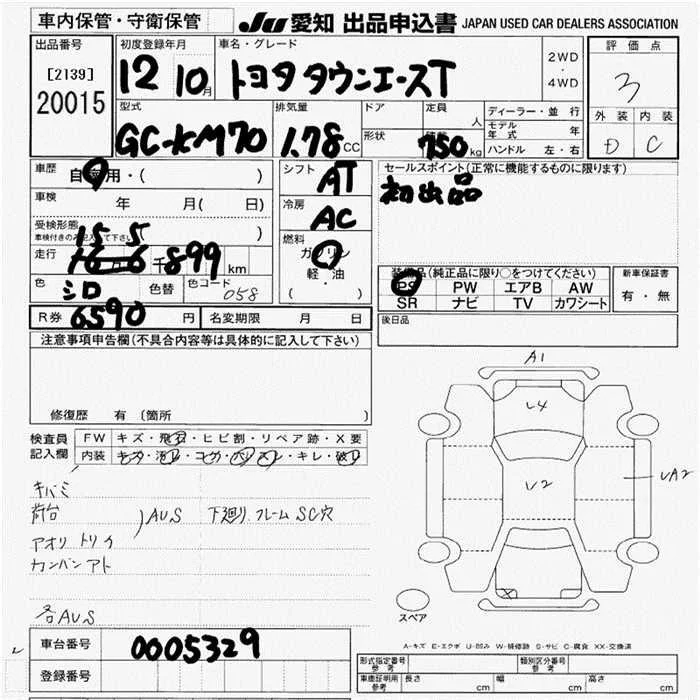 車内保管・守衛保管
JU 愛知 出品申込書 JAPAN USED CAR DEALERS ASSOCIATION
出品番号
[2139]
20015
初度登録年月
12 10月
車名・グレード
トヨタタウンエースT
2WD
・
4WD
評価点
3
外装 内装
D C
型式
GC-KM70
排気量
1.78 CC
ドア
形状
定員
人
積載
750 kg
ディーラー・並行
モデル年式 年
ハンドル 左・右
車歴
自家用・( )
車検
年 月( 日)
受検形態
走行
155 千 899 km
色
シロ
色替
色コード
058
シフト
AT
冷房
AC
燃料
ガソリン
軽・油
( )
セールスポイント(正常に機能するものに限ります)
初出品
装備品(純正品に限り○をつけてください)
PS PW エアB AW
SR ナビ TV カワシート
新車保証書
有・無
後日品
R券 6590 円
名変期限 月 日
注意事項申告欄(不具合内容等は具体的に記入して下さい)
修復歴 有(箇所 )
検査員
記入欄
FW キズ・飛石・ヒビ割・リペア跡・X要
内装 キズ・汚レ・コゲ・穴・スレ・キレ・破レ
キバミ
荷台
アオリ トリ
カンバンアト
AUS
下廻り.フレームSC穴
各AUS
A1
U4
U2
UA2
X
スペア
A-キズ E-エクボ U-凹み W-補修跡 S-サビ C-腐食 XX-交換済
車台番号 0005329
登録番号
形式指定番号
参考
類別区分番号
参考
車庫証明用
参考
長さ cm 幅 cm 高さ cm